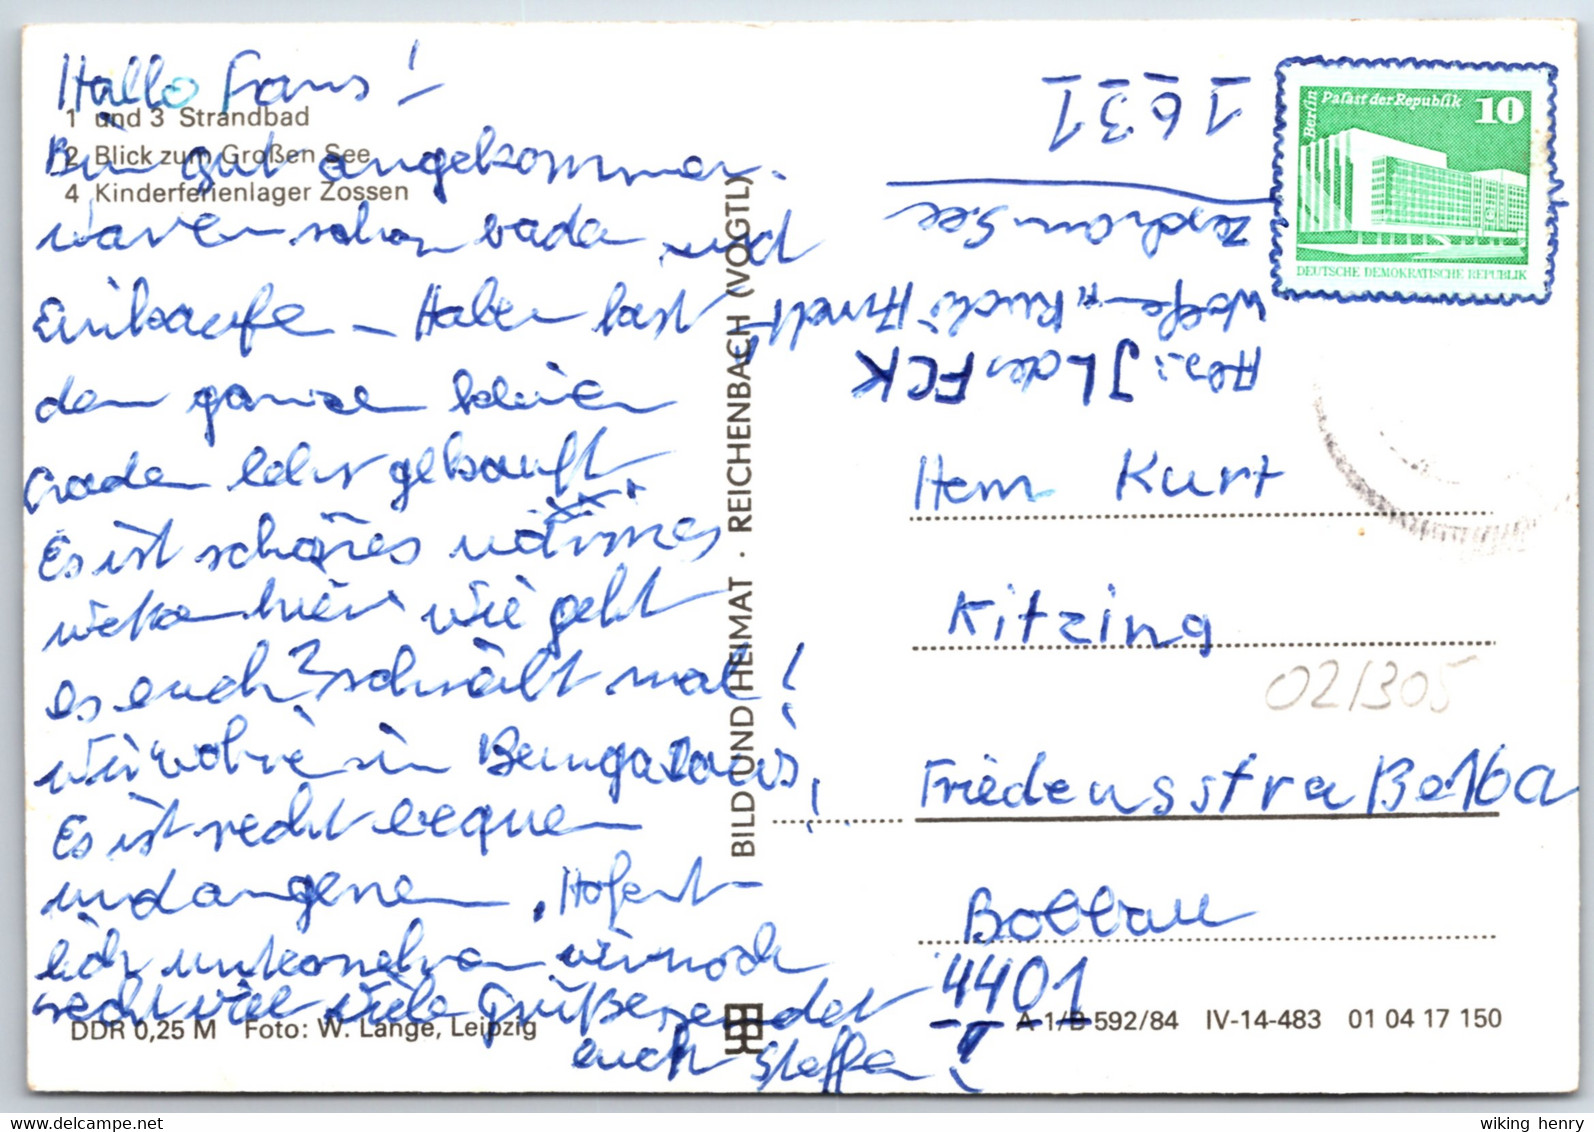 Hallo Fans!
1 und 3 Strandbad
2 Blick zum Großen See
4 Kinderferienlager Zossen
Bin gut angekommen.
waren schon baden und
Einkaufen – Haben fast
den ganzen kleinen
laden lehr gekauft
Es ist schönes warmes
wie geht
es euch? schreibt mal!
wir wohnen in Bungalows,
Es ist recht bequem
und angenem. Hofent-
lich wir noch
recht viel viele Grüße sendet
euch Steffen!
DDR 0,25 M Foto: W. Lange, Leipzig
BILD UND HEIMAT · REICHENBACH (VOGTL)
1631
Zesch am See
Wolfen
Abs.: JL des FCK
Berlin Palast der Republik 10
DEUTSCHE DEMOKRATISCHE REPUBLIK
Herrn Kurt
Kitzing
02/305
Friedensstraße 16a
Bobbau
4401
A 1/B 592/84 IV-14-483 01 04 17 150
wiking henry